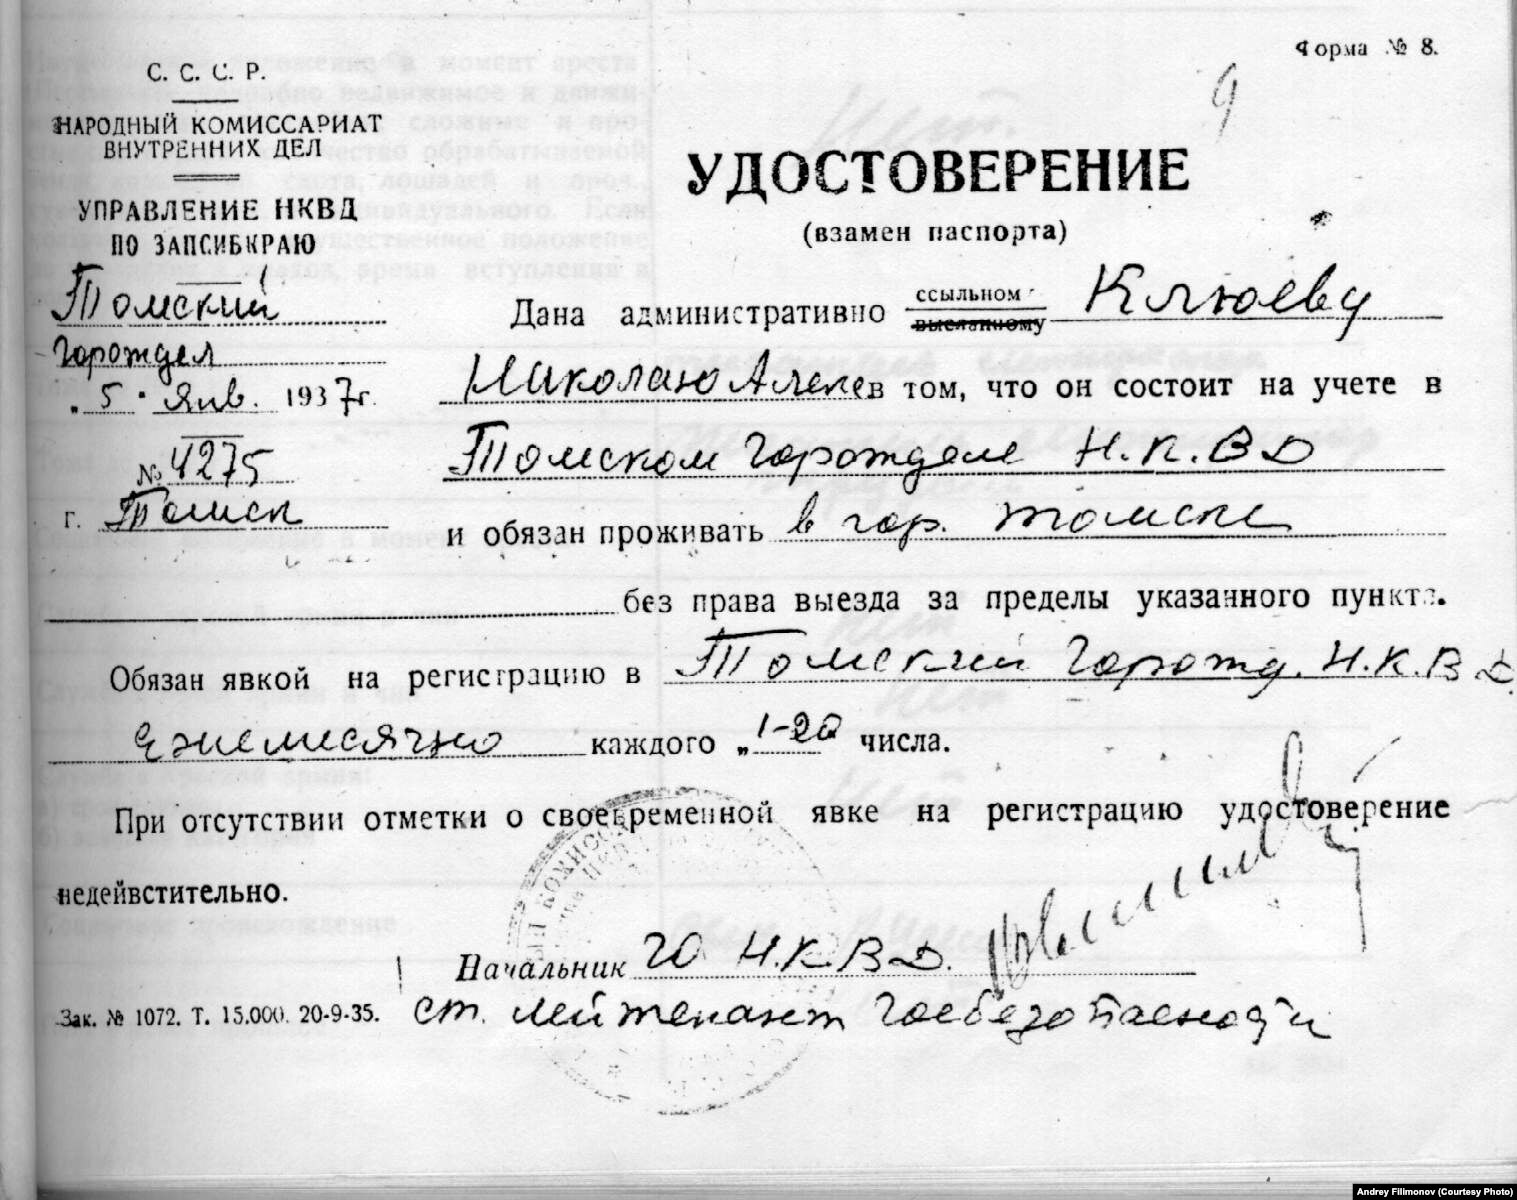 Форма № 8.
9
С. С. С. Р.
НАРОДНЫЙ КОМИССАРИАТ
ВНУТРЕННИХ ДЕЛ
УПРАВЛЕНИЕ НКВД
ПО ЗАПСИБКРАЮ
Томский
Горотдел
„ 5 " Янв. 1937г.
№ 4275
г. Томск
УДОСТОВЕРЕНИЕ
(взамен паспорта)
Дана административно ссыльном высланному Клюеву
Николаю Алексе в том, что он состоит на учете в
Томском Горотделе Н.К.В.Д
и обязан проживать в гор. Томске
без права выезда за пределы указанного пункта.
Обязан явкой на регистрацию в Томский Горотд. Н.К.В.Д.
Ежемесячно каждого „1-20 числа.
При отсутствии отметки о своевременной явке на регистрацию удостоверение
недейвстительно.
Начальник ГО Н.К.В.Д.
ст. лейтенант Госбезопасности
Зак. № 1072. Т. 15.000. 20-9-35.
Andrey Filimonov (Courtesy Photo)